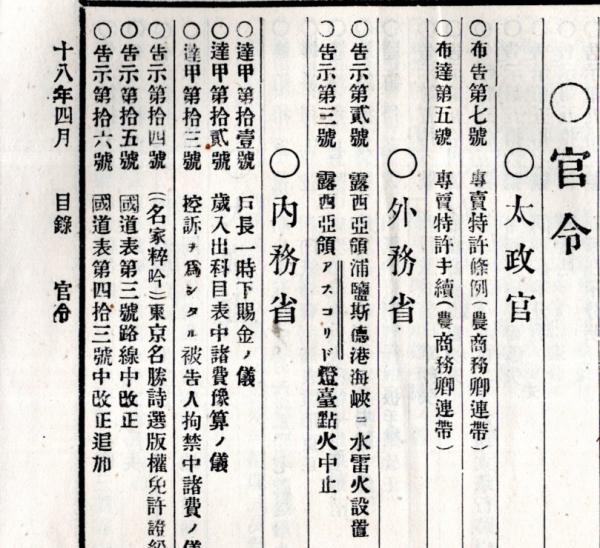 〇官令
〇太政官
〇布告第七號 專賣特許條例(農商務卿連帶)
〇布達第五號 專賣特許手續(農商務卿連帶)
〇外務省
〇告示第貳號 露西亞領浦鹽斯德港海峽ニ水雷火設置
〇告示第三號 露西亞領アスコリド燈臺點火中止
〇内務省
〇達甲第拾壹號 戸長一時下賜金ノ儀
〇達甲第拾貳號 歲入出科目表中諸費豫算ノ儀
〇達甲第拾三號 控訴ヲ爲シタル被告人拘禁中諸費ノ儀
〇告示第拾四號 (名家粹吟)東京名勝詩選版權免許證紛
〇告示第拾五號 國道表第三號路線中改正
〇告示第拾六號 國道表第四拾三號中改正追加
十八年四月 目錄 官令